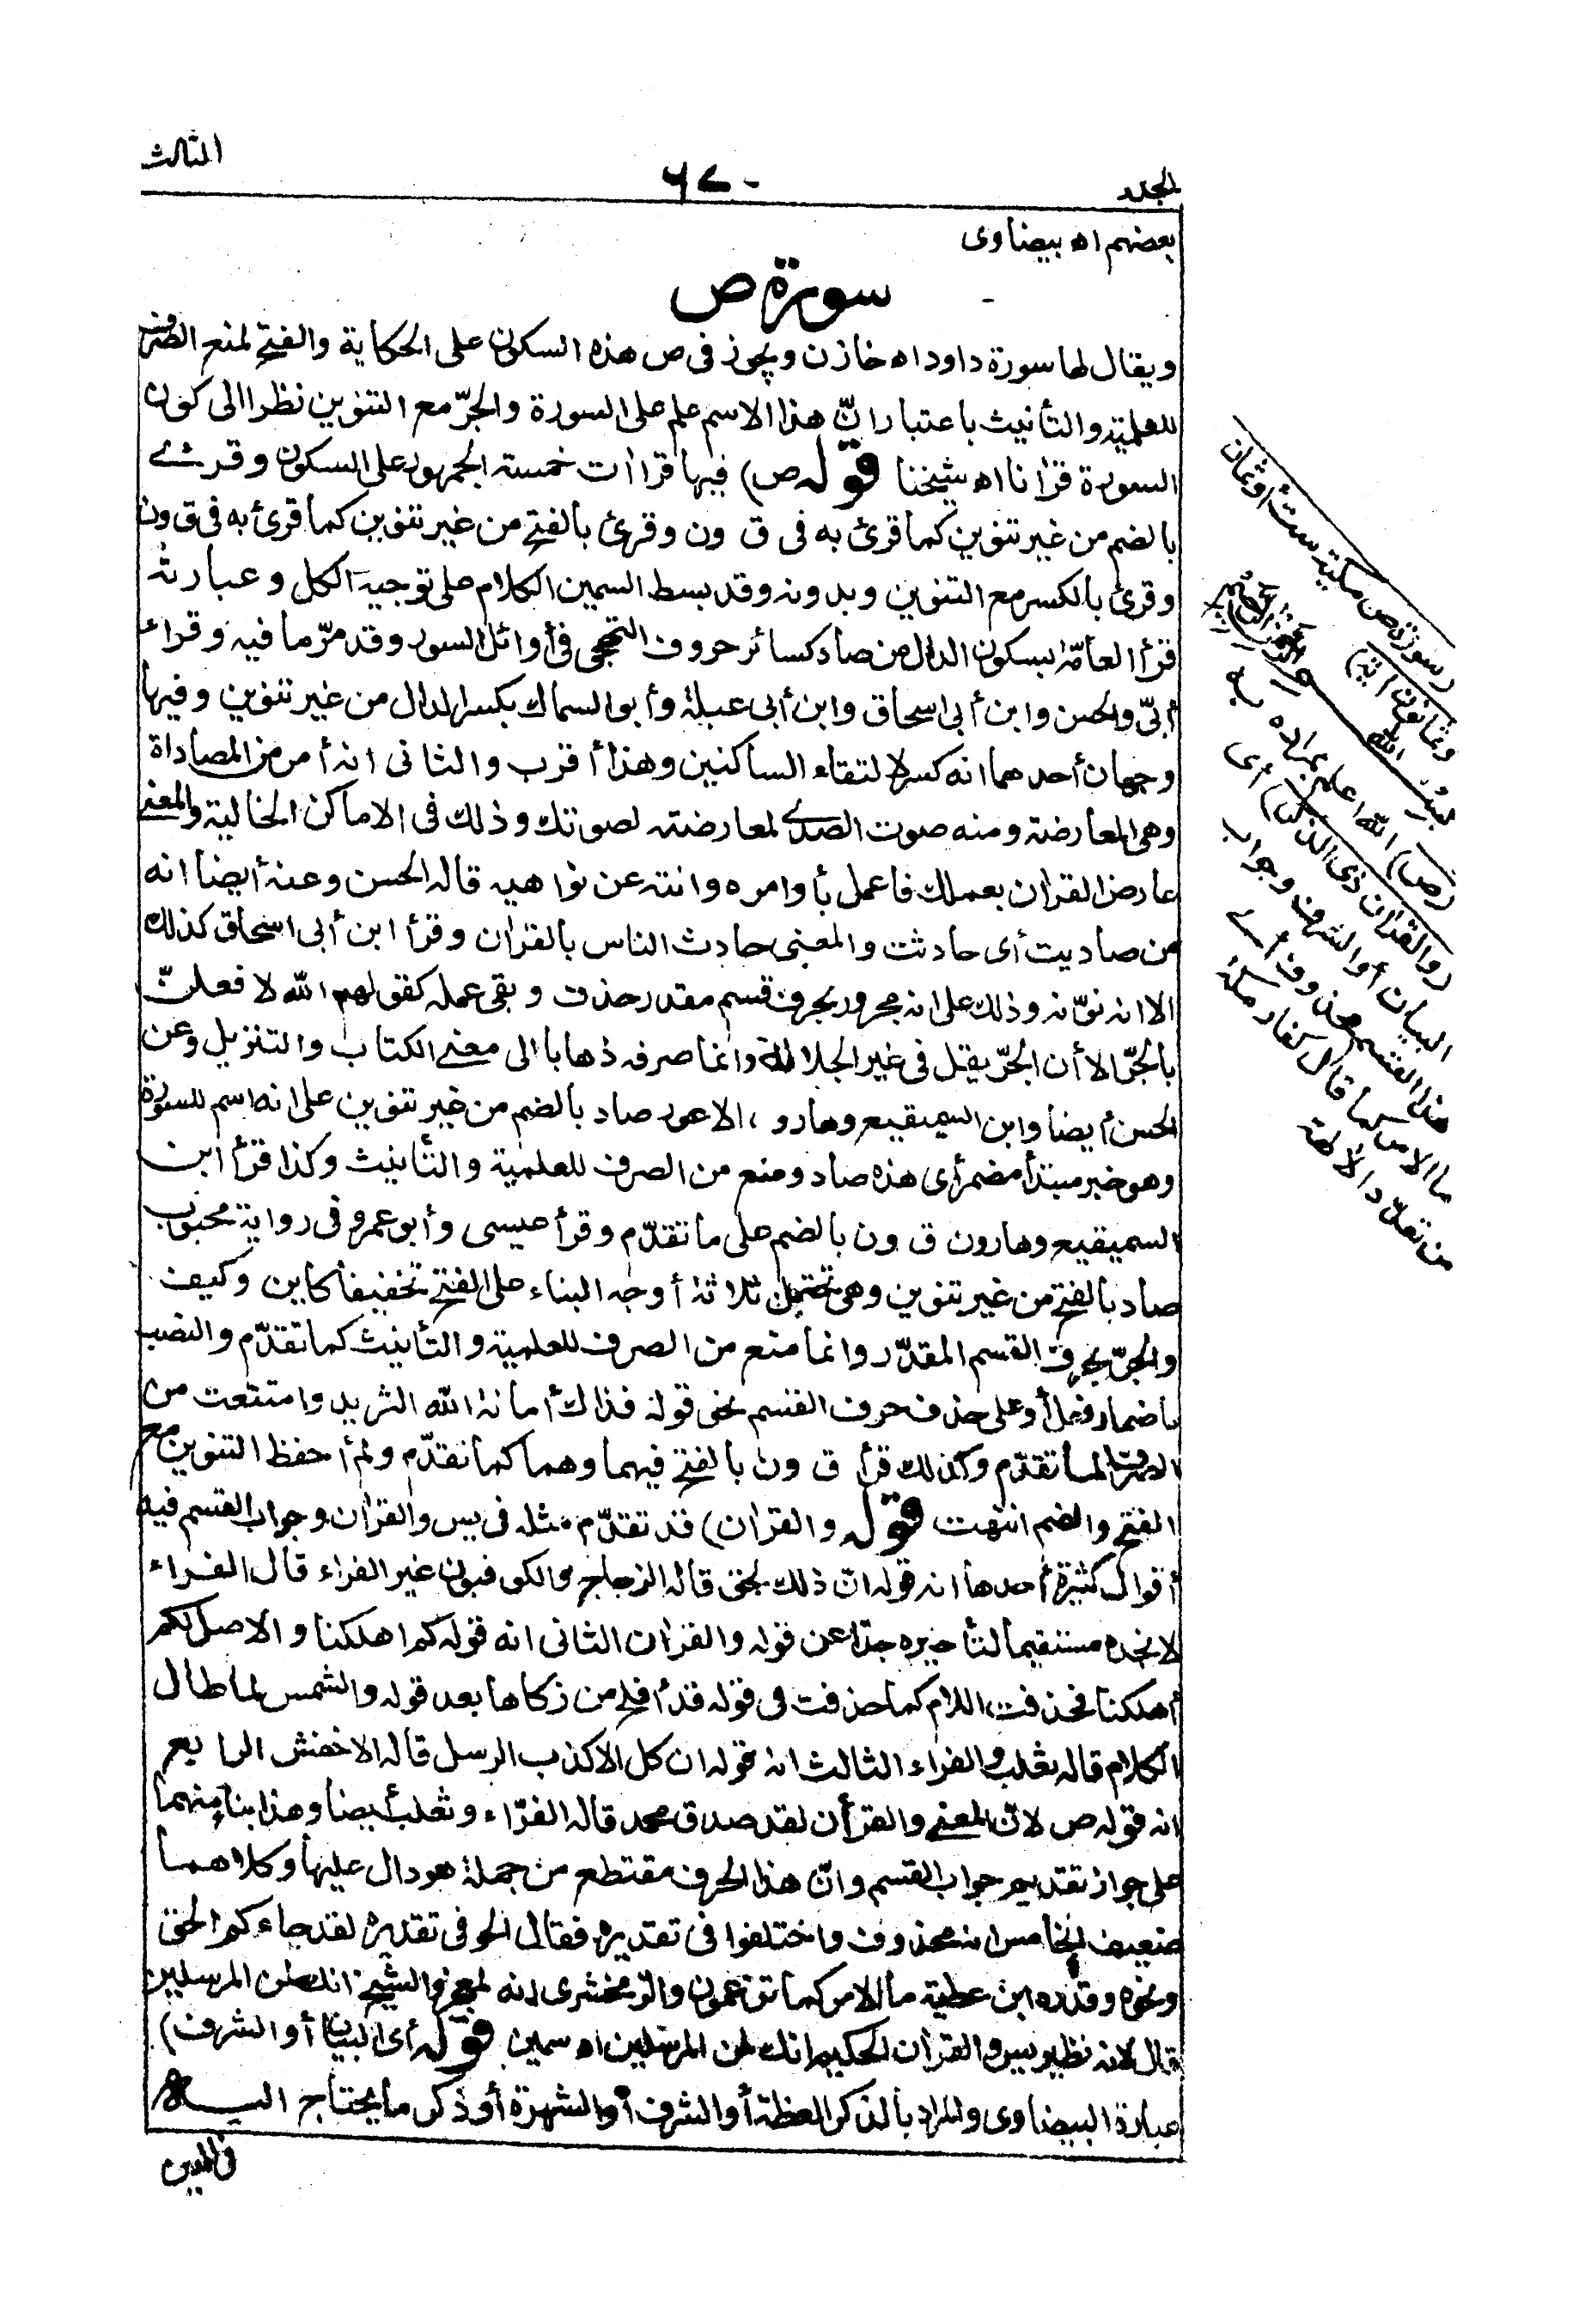 الجلد
٦٧٠
الثالث
بعضهم اه بيضاوى
سورة ص
ويقال لها سورة داود اه خازن ويجوز فى ص هذه السكون على الحكاية والفتح لمنع الصرف
للعلمية والتأنيث باعتبار انّ هذا الاسم علم على السورة والجرّ مع التنوين نظرا الى كون
السورة قرانا اه شيخنا قوله ص) فيها قراات خمسة الجمهور على السكون وقرئ
بالضم من غير تنوين كما قرئ به فى ق ون وقرئ بالفتح من غير تنوين كما قرئ به فى ق ون
وقرئ بالكسر مع التنوين وبدونه وقد بسط السمين الكلام على توجيه الكل وعبارته
قرأ العامّة بسكون الدال من صاد كسائر حروف التهجى فى أوائل السور وقد مرّ ما فيه وقراء
أبىّ والحسن وابن أبى اسحاق وابن أبى عبلة وأبو السماك بكسر الدال من غير تنوين وفيها
وجهان أحدهما انه كسر لالتقاء الساكنين وهذا أقرب والثانى انه أمر من المصاداة
وهى المعارضة ومنه صوت الصدى لمعارضته لصوتك وذلك فى الاماكن الخالية والمعنى
عارض القران بعملك فاعمل بأوامره وانته عن نواهيه قاله الحسن وعنه أيضا انه
من صاديت أى حادثت والمعنى حادث الناس بالقران وقرأ ابن أبى اسحاق كذلك
الا انه نوّنه وذلك على انه مجرور بحرف قسم مقدر حذف وبقى عمله كقولهم الله لافعلنّ
بالجرّ الا أن الجرّ يقل فى غير الجلالة وانما صرفه ذهابا الى معنى الكتاب والتنزيل وعن
الحسن أيضا وابن السميقيع وهارو، الاعور صاد بالضم من غير تنوين على انه اسم للسورة
وهو خبر مبتدأ مضمر أى هذه صاد ومنع من الصرف للعلمية والتأنيث وكذا قرأ ابن
السميقيع وهارون ق ون بالضم على ما تقدّم وقرأ عيسى وأبو عمرو فى رواية محبوب
صاد بالفتح من غير تنوين وهى تحتمل ثلاثة أوجه البناء على الفتح تخفيفا كاين وكيف
والجرّ بحرف القسم المقدّر وانما منع من الصرف للعلمية والتأنيث كما تقدّم والنصب
باضمار فعل أو على حذف حرف القسم نحو قوله فذاك أمانة الله الثريد وامتنعت من
الصرف لما تقدّم وكذلك قرأ ق ون بالفتح فيهما وهما كما تقدّم ولم أحفظ التنوين مع
الفتح والضم انتهت قوله والقران) قد تقدّم مثله فى يس والقران وجواب القسم فيه
أقوال كثيرة أحدها انه قوله انّ ذلك لحق قاله الزجاج والكوفيون غير الفراء قال الفراء
لا نجده مستقيما لتأخيره جدّا عن قوله والقران الثانى انه قوله كم اهلكنا والاصل لكم
أهلكنا فحذفت اللام كما حذفت فى قوله قد أفلح من زكاها بعد قوله والشمس لما طال
الكلام قاله ثعلب والفراء الثالث انه قوله ان كل الا كذب الرسل قاله الاخفش الرابع
انه قوله ص لانّ المعنى والقرأن لقد صدق محمد قاله الفرّاء وثعلب أيضا وهذا بناء منهما
على جواز تقديم جواب القسم وانّ هذا الحرف مقتطع من جملة هو دال عليها وكلاهما
ضعيف الخامس انه محذوف واختلفوا فى تقديره فقال الحوفى تقديره لقد جاءكم الحق
ونحوه وقدره ابن عطية ما الامر كما تزعمون والزمخشرى انه لمعجز والشيخ انك لمن المرسلين
قال لانه نظير يس والقران الحكيم انك لمن المرسلين اه سمين قوله أى البيان أو الشرف)
عبارة البيضاوى والمراد بالذكر العظة أو الشرف أو الشهرة أو ذكر ما يحتاج اليه
فى الدين
(سورة ص مكية ست أو ثمان
وثمانون اية)
الله
(ص) الله اعلم بمراده به
(والقران ذى الذكر) أى
البيان أو الشرف وجواب
هذا القسم محذوف أى
ما الامر كما قال كفار مكة
من تعدّد الالهة